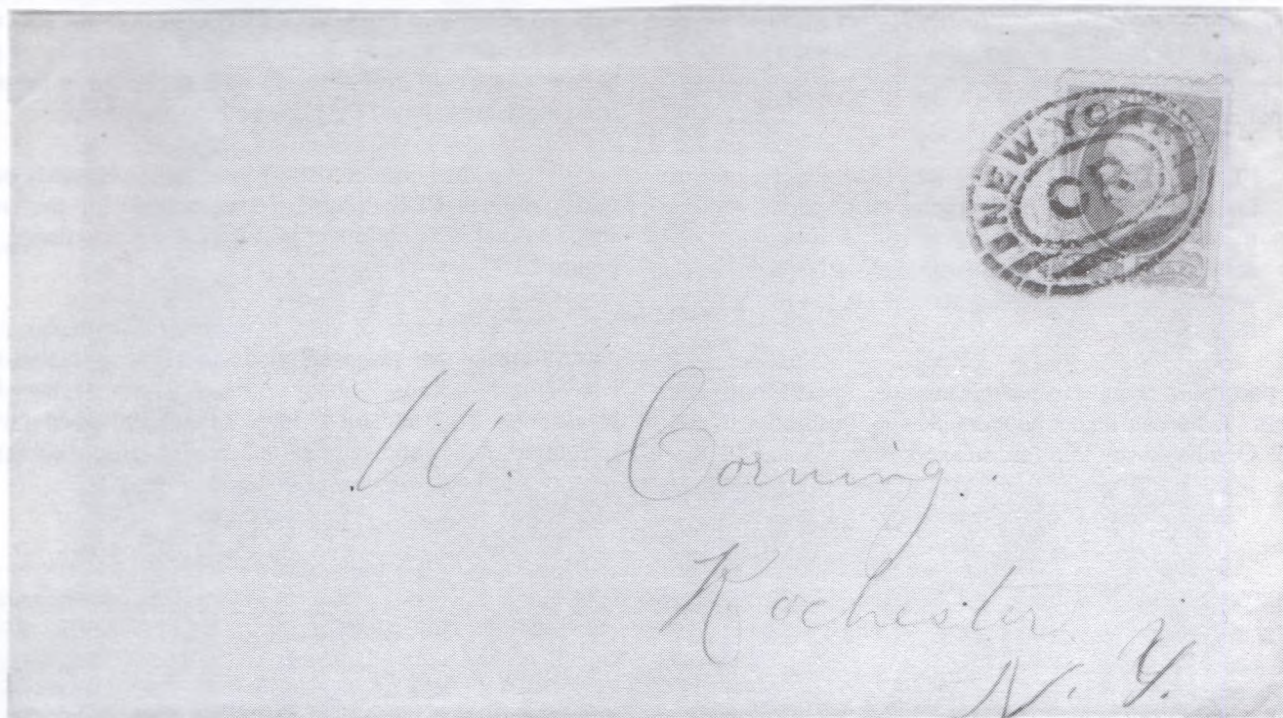 NEW YO
OR
W. Corning.
Rochester
N. Y.